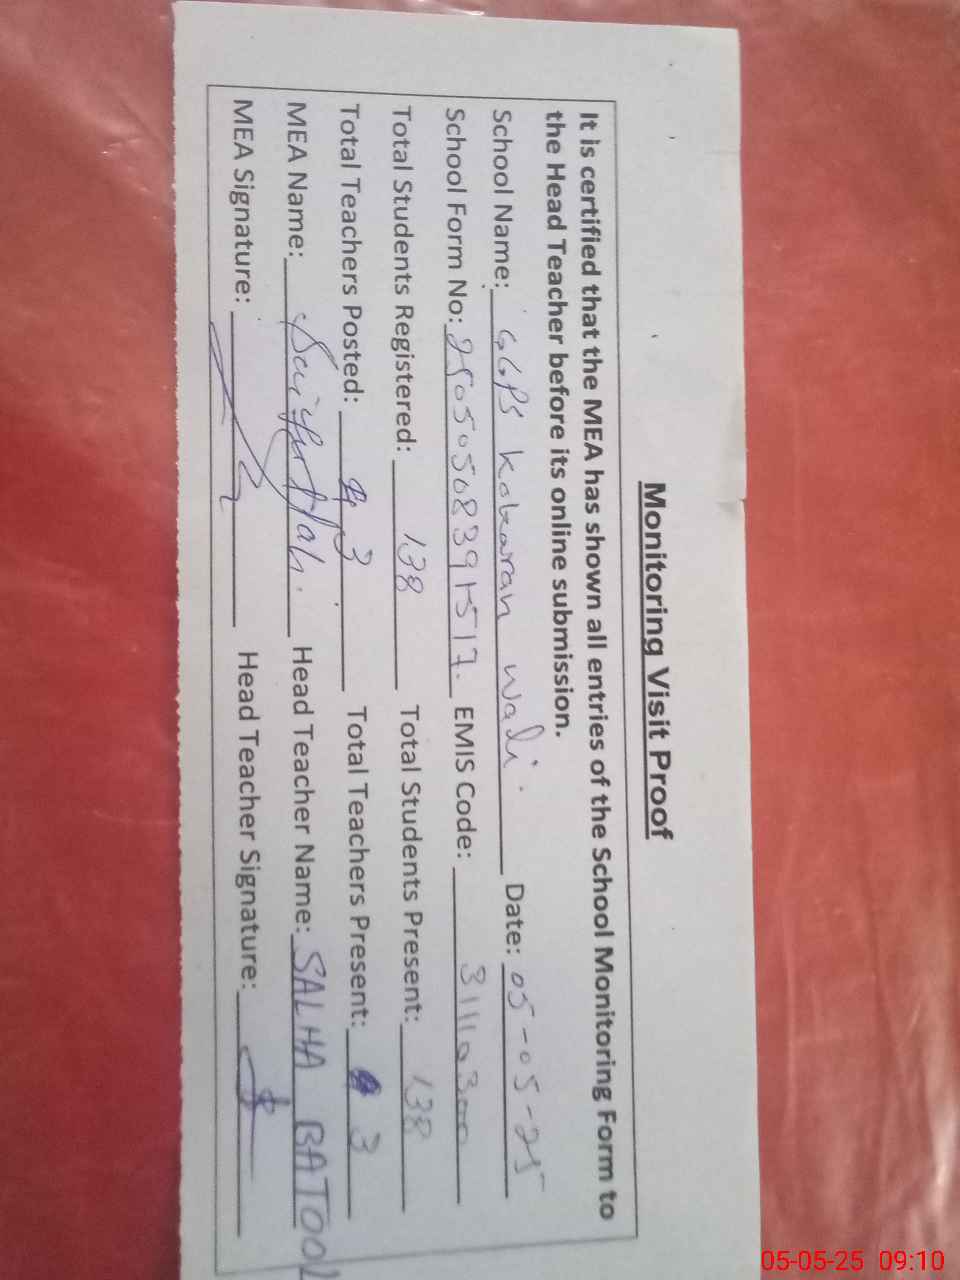 Monitoring Visit Proof
It is certified that the MEA has shown all entries of the School Monitoring Form to
the Head Teacher before its online submission.
School Name: GGPS Kokaran wali. Date: 05-05-25
School Form No: EMIS Code:
Total Students Registered: 138 Total Students Present: 138
Total Teachers Posted: 3 Total Teachers Present: 3
MEA Name: Head Teacher Name: SALHA BATOOL
MEA Signature: Head Teacher Signature:
05-05-25 09:10